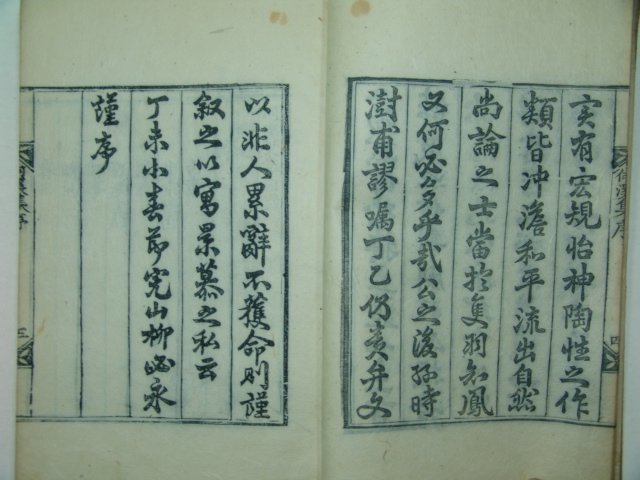 實有宏規怡神陶性之作
類皆冲澹和平流出自然
尚論之士當於隻羽知鳳
又何必多乎哉公之後孫時
澍甫謬囑丁乙仍責弁文
以非人累辭不獲命則謹
叙之以寓景慕之私云
丁未小春節完山柳永
謹序
集序